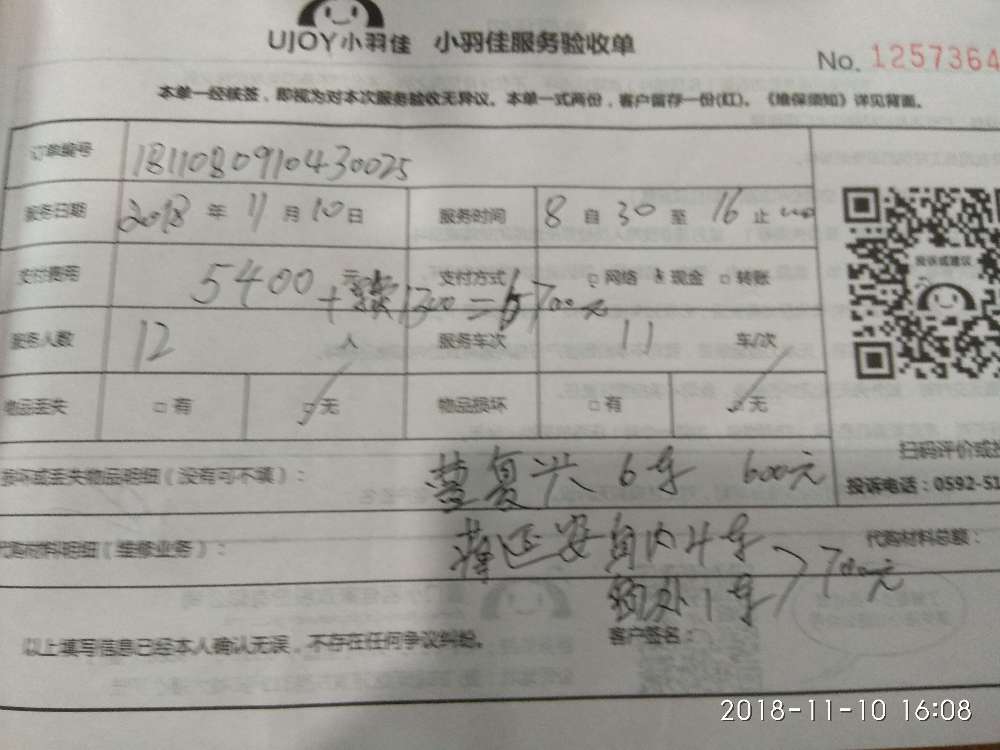 UJOY小羽佳 小羽佳服务验收单
No. 1257364
本单一经核签，即视为对本次服务验收无异议。本单一式两份，客户留存一份(红)。《维保须知》详见背面。
订单编号 1811080910430025
服务日期 2018 年 11 月 10 日 服务时间 8 自 30 至 16 止
支付费用 5400 元 支付方式 □网络 现金 □转账
+ 1300 = 6700元
服务人数 12 人 服务车次 11 车/次
投诉或建议
物品丢失 □有 ☑无 物品损坏 □有 ☑无
扫码评价或投
损坏或丢失物品明细（没有可不填）： 复兴 6车 600元
投诉电话：0592-51
代购材料明细（维修业务）： 延安 内4车
代购材料总额：
1车 700元
以上填写信息已经本人确认无误，不存在任何争议纠纷。 客户签名：
2018-11-10 16:08